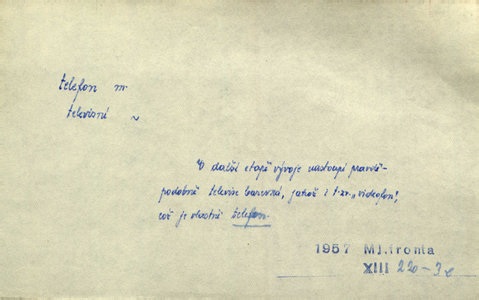 telefon m
televisní ~
V další etapě vývoje nastoupí pravdě-
podobně televise barevná, jakož i t.zv. „videofon",
což je vlastně telefon
1957 Ml.fronta
XIII 220-3c